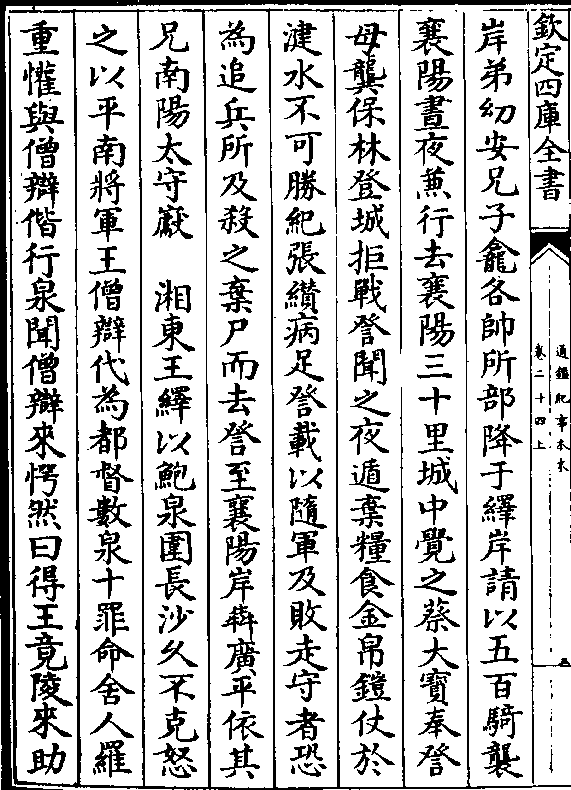 欽定四庫全書
通鑑紀事本末
卷二十四上
五
岸弟幼安兄子龕各帥所部降于繹岸請以五百騎襲
襄陽晝夜兼行去襄陽三十里城中覺之蔡大寶奉詧
母龔保林登城拒戰詧聞之夜遁棄糧食金帛鎧仗於
湕水不可勝紀張纘病足詧載以隨軍及敗走守者恐
為追兵所及殺之棄尸而去詧至襄陽岸犇廣平依其
兄南陽太守巚　湘東王繹以鮑泉圍長沙久不克怒
之以平南將軍王僧辯代為都督數泉十罪命舍人羅
重懽與僧辯偕行泉聞僧辯來愕然曰得王竟陵來助